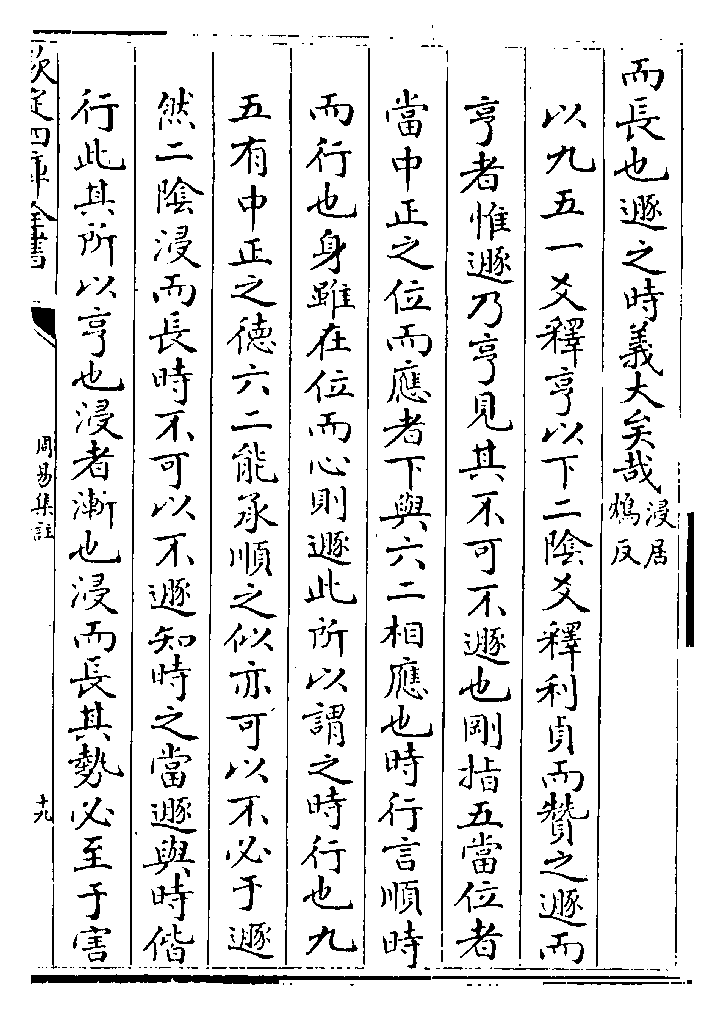 而長也遯之時義大矣哉浸居
鴆反
以九五一爻釋亨以下二陰爻釋利貞而贊之遯而
亨者惟遯乃亨見其不可不遯也剛指五當位者
當中正之位而應者下與六二相應也時行言順時
而行也身雖在位而心則遯此所以謂之時行也九
五有中正之德六二能承順之似亦可以不必于遯
然二陰浸而長時不可以不遯知時之當遯與時偕
行此其所以亨也浸者漸也浸而長其勢必至于害
欽定四庫全書
周易集註
十九